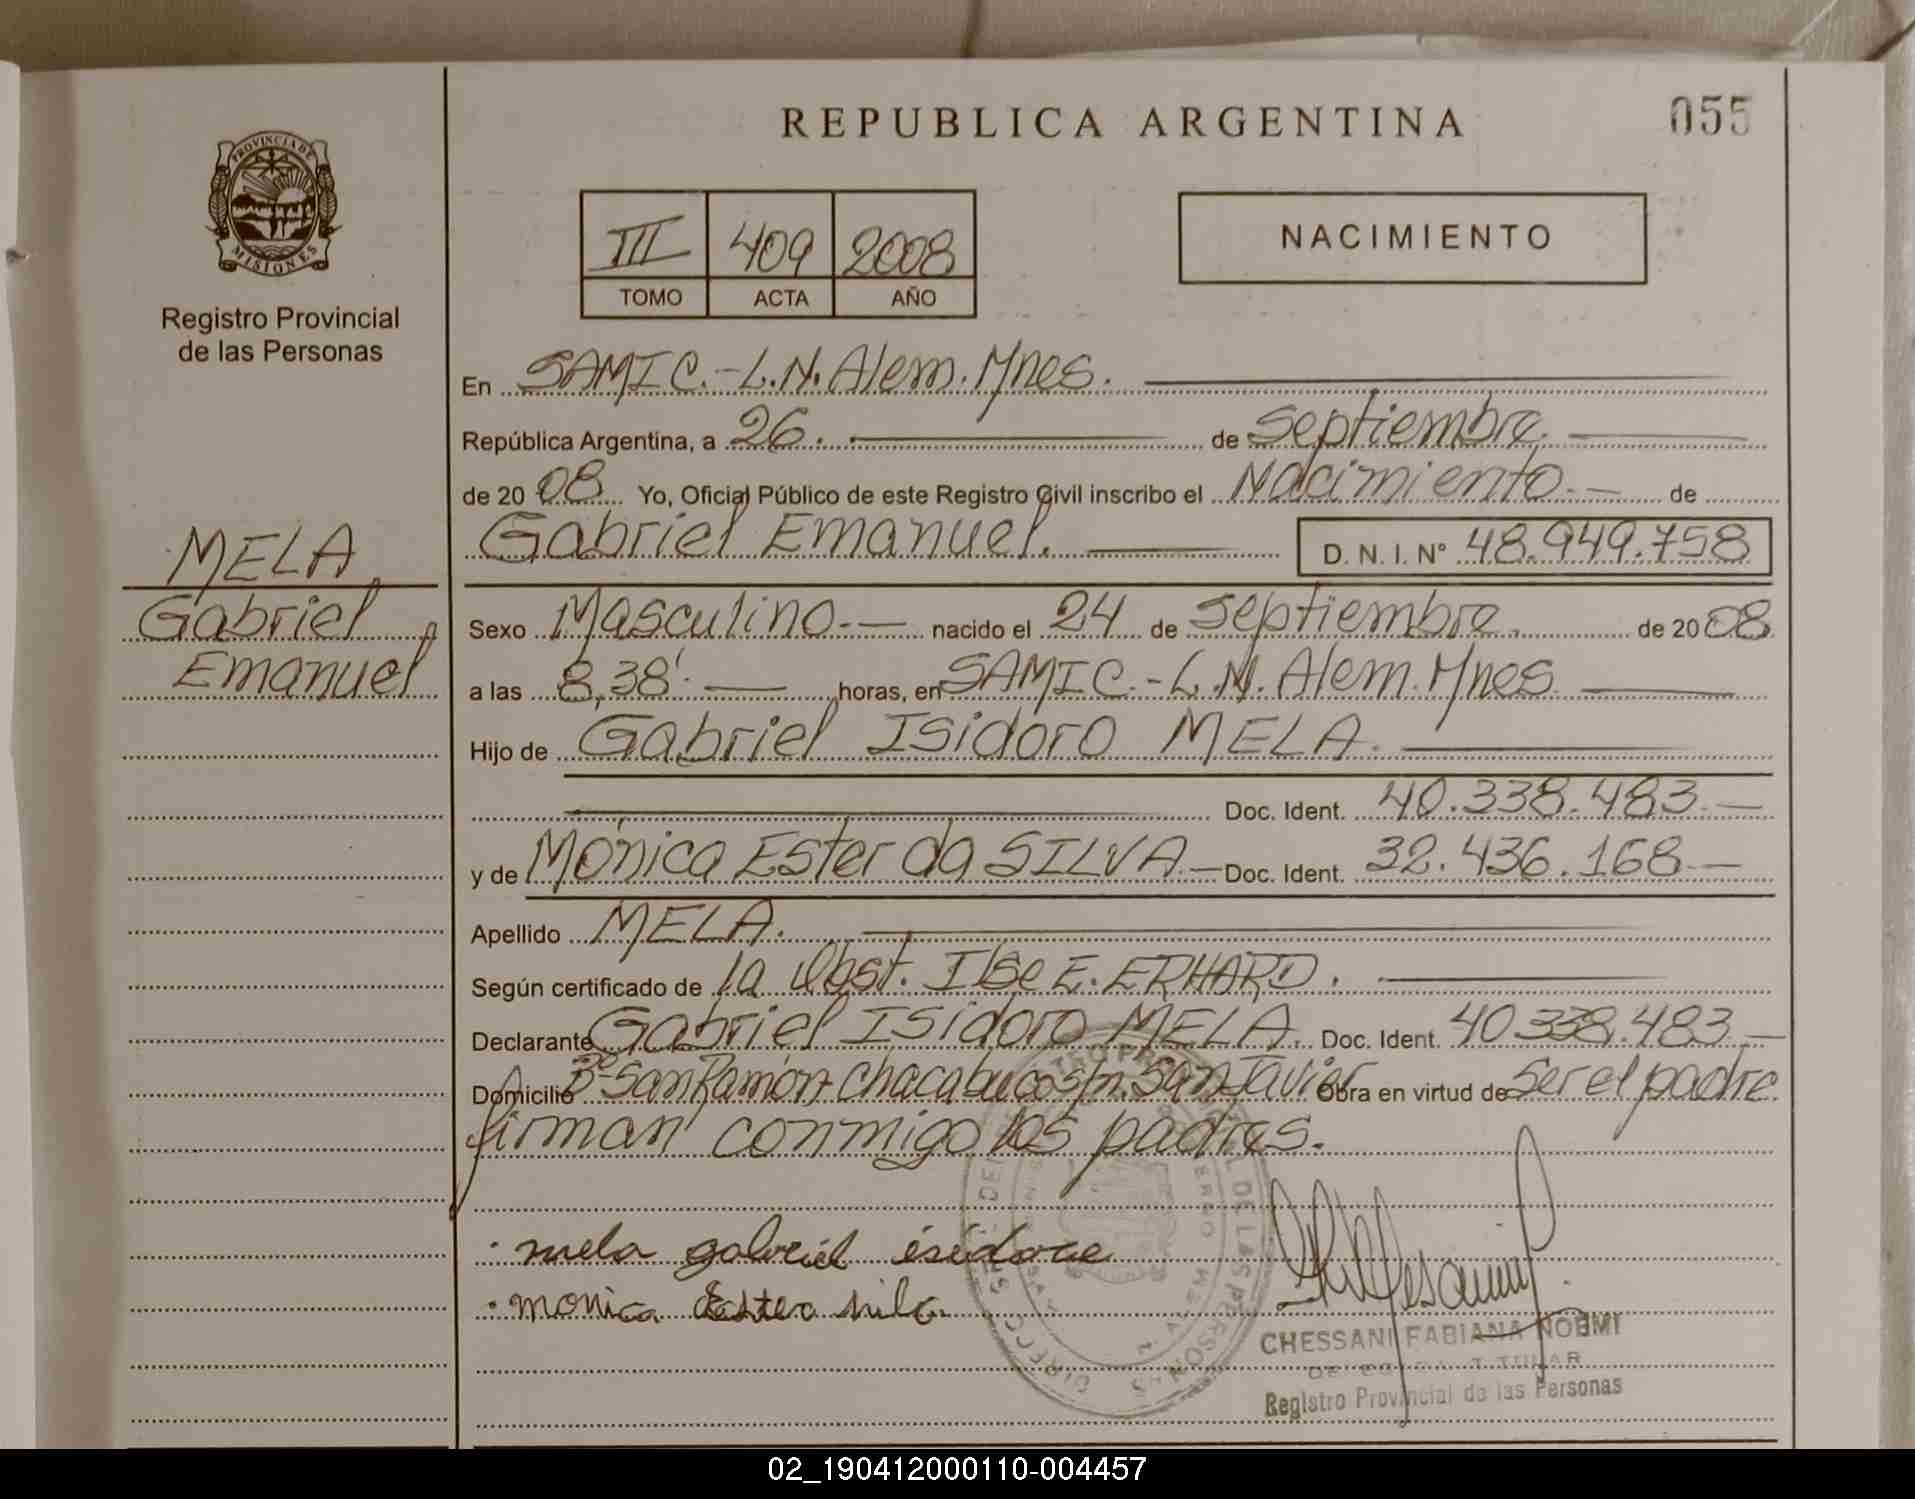 REPUBLICA ARGENTINA
055
PROVINCIA DE
MISIONES
Registro Provincial
de las Personas
III 409 2008
TOMO ACTA AÑO
NACIMIENTO
En SAMIC.-L.N. Alem. Mnes.
República Argentina, a 26. de septiembre.
de 2008 Yo, Oficial Público de este Registro Civil inscribo el Nacimiento.- de
Gabriel Emanuel. D. N. I. N° 48.949.758
MELA,
Gabriel
Emanuel
Sexo Masculino.- nacido el 24 de septiembre. de 2008
a las 8,38'. horas, en SAMIC.-L.N. Alem. Mnes.
Hijo de Gabriel Isidoro MELA.
Doc. Ident. 40.338.483.-
y de Mónica Ester da SILVA.- Doc. Ident. 32.436.168-
Apellido MELA.
Según certificado de la Obst. Ilse E. ERHARD.
Declarante Gabriel Isidoro MELA. Doc. Ident. 40.338.483.-
Domicilio Bº San Ramón-Chacabuco s/n. San Javier Obra en virtud de ser el padre.
firman conmigo los padres.
mela gabriel isidoro
monica Ester silva
CHESSANI FABIANA NOEMI
DELEGADA TITULAR
Registro Provincial de las Personas
02_190412000110-004457